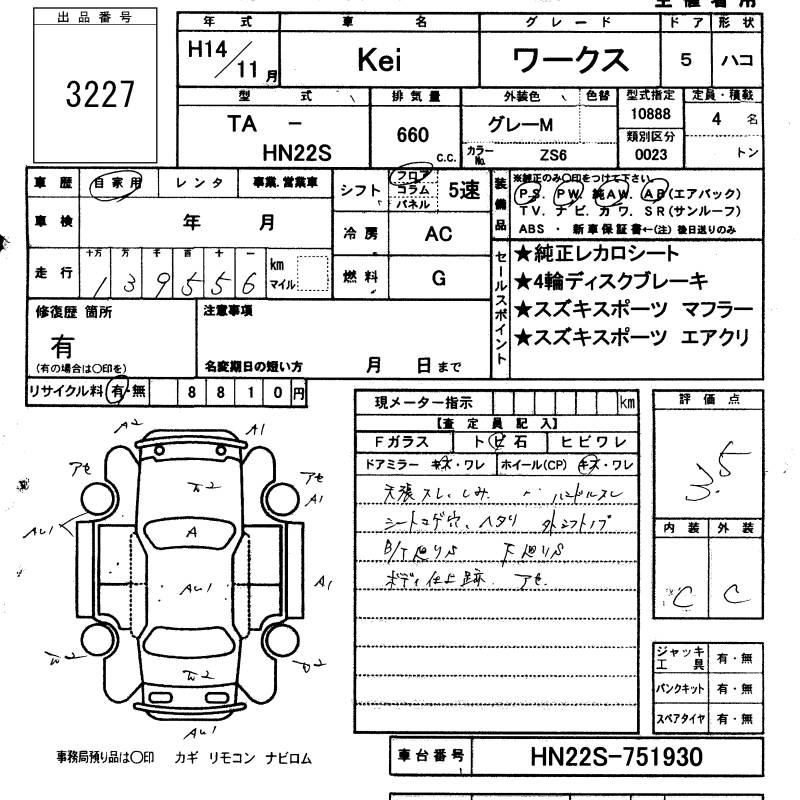 出品番号
3227
年式 車名 グレード ドア 形状
H14/11月 Kei ワークス 5 ハコ
型式 排気量 外装色 色替 型式指定 定員・積載
TA - 660 c.c. グレーM 10888 4 名
HN22S カラーNo. ZS6 類別区分 0023 トン
車歴 自家用 レンタ 事業.営業車
車検 年 月
走行 十万 万 千 百 十 一 km マイル
139556
シフト フロア コラム パネル 5速
冷房 AC
燃料 G
装備品
※純正のみ〇印をつけて下さい。
P.S. PW. 純AW. AB(エアバック)
TV. ナビ. カワ. SR(サンルーフ)
ABS ・ 新車保証書←(注) 後日送りのみ
セールスポイント
★純正レカロシート
★4輪ディスクブレーキ
★スズキスポーツ マフラー
★スズキスポーツ エアクリ
修復歴 箇所
有
(有の場合は〇印を)
注意事項
名変期日の短い方 月 日まで
リサイクル料 有・無 8810円
現メーター指示 km
【査定員記入】
Fガラス トビ石 ヒビワレ
ドアミラー キズ・ワレ ホイール(CP) キズ・ワレ
天張スレ、しみ ハンドルスレ
シートコゲ穴、ヘタリ 外シフトノブ
B/T廻りS 下廻りS
ボディ仕上跡 アセ
評価点
3.5
内装 外装
C C
ジャッキ工具 有・無
パンクキット 有・無
スペアタイヤ 有・無
A2 A1
アセ W2 アセ
A1
AW1 A
AW1 A1
W2 W2
AW1
事務局預り品は〇印 カギ リモコン ナビロム
車台番号 HN22S-751930